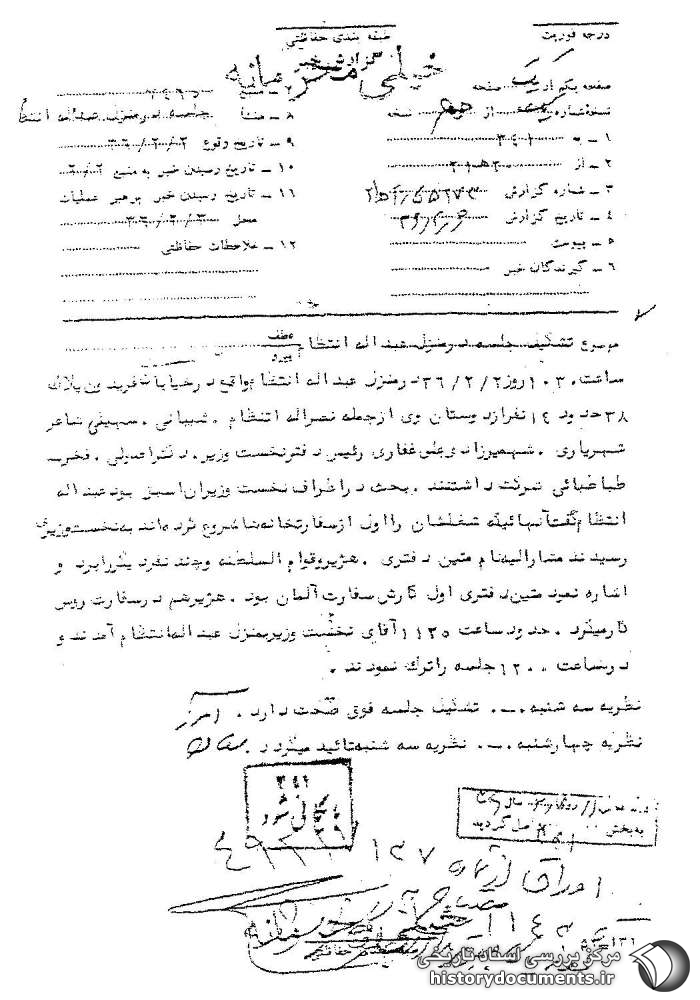 درجه فوریت
طبقه بندی حفاظتی
گزارش خبر
خیلی محرمانه
صفحه یکم از یک صفحه
نسخه شماره از نسخه
۱ ـ به ۳۴۱
۲ ـ از ۲۰ه۲
۳ ـ شماره گزارش
۴ ـ تاریخ گزارش
۵ ـ پیوست
۶ ـ گیرندگان خبر
۷ ـ منبع
۸ ـ منشأ جلسه در منزل عبداله انتظام
۹ ـ تاریخ وقوع ۳۶/۲/۲
۱۰ ـ تاریخ رسیدن خبر به منبع
۱۱ ـ تاریخ رسیدن خبر برهبر عملیات
محل ۳۶/۲/۳
۱۲ ـ ملاحظات حفاظتی
موضوع تشکیل جلسه در منزل عبداله انتظام
عطف
پیرو
ساعت ۱۰۳۰ روز ۳۶/۲/۲ در منزل عبداله انتظام واقع در خیابان فریدون پلاک
۳۸ حدود ۱۲ نفر از دوستان وی از جمله نصراله انتظام . شیبانی . سهیلی شاعر
شهریاری . شهمیرزاد وعلی غفاری رئیس دفتر نخست وزیر . دکتر اصولی . فخر
طباطبائی شرکت داشتند . بحث در اطراف نخست وزیران اسبق بود عبداله
انتظام گفت آنهائیکه شغلشان را اول از سفارتخانه ها شروع کرده اند به نخست وزیری
رسیدند مشارالیه نام متین دفتری . هژیر وقوام السلطنه وچند نفر دیگر را برد و
اشاره نمود متین دفتری اول کارش سفارت آلمان بود . هژیر هم در سفارت روس
کار میکرد . حدود ساعت ۱۱۳۵ آقای نخست وزیر بمنزل عبداله انتظام آمدند و
در ساعت ۱۲۰۰ جلسه را ترک نمودند .
نظریه سه شنبه .ـ. تشکیل جلسه فوق صحت دارد .
نظریه چهارشنبه .ـ. نظریه سه شنبه تائید میگردد .
۳۴۱
بایگانی شود
به بخش ۳۴۱ واصل گردید
اوراق از شماره
خیلی محرمانه
مرکز بررسی اسناد تاریخی
historydocuments.ir